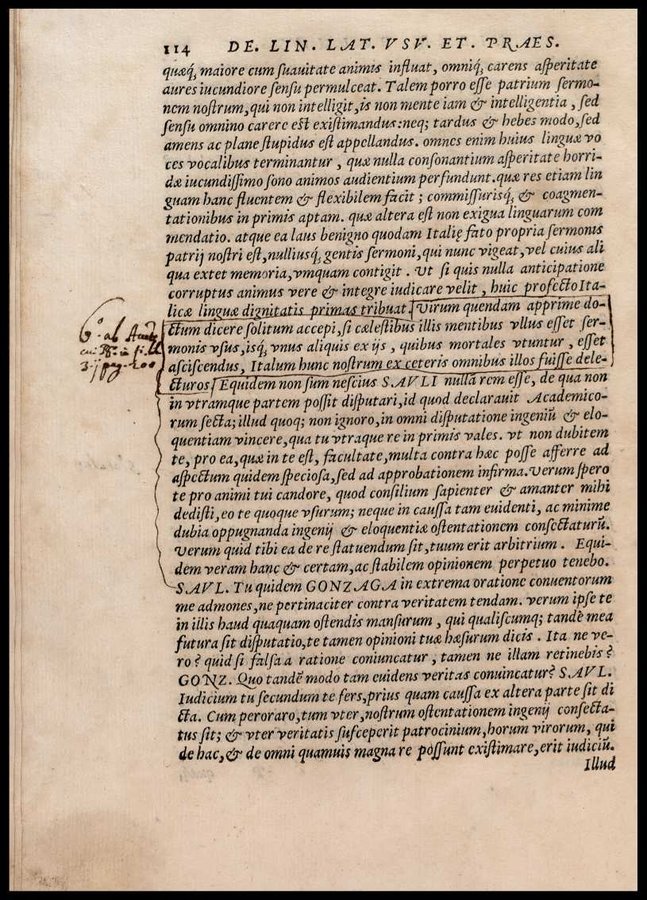 114 DE. LIN. LAT. VSV. ET. PRAES.
quæq́, maiore cum suauitate animis influat, omniq́, carens asperitate
aures iucundiore sensu permulceat. Talem porro esse patrium sermo-
nem nostrum, qui non intelligit, is non mente iam & intelligentia, sed
sensu omnino carere est existimandus: neq; tardus & hebes modo, sed
amens ac plane stupidus est appellandus. omnes enim huius linguæ vo
ces vocalibus terminantur, quæ nulla consonantium asperitate horri-
dæ iucundissimo sono animos audientium perfundunt. quæ res etiam lin
guam hanc fluentem & flexibilem facit; commissurisq́, & coagmen-
tationibus in primis aptam. quæ altera est non exigua linguarum com
mendatio. atque ea laus benigno quodam Italię fato propria sermonis
patrij nostri est, nulliusq́, gentis sermoni, qui nunc vigeat, vel cuius ali
qua extet memoria, vmquam contigit. Vt si quis nulla anticipatione
corruptus animus vere & integre iudicare velit, huic profecto Ita-
licæ linguæ dignitatis primas tribuat. Virum quendam apprime do-
ctum dicere solitum accepi, si cælestibus illis mentibus vllus esset ser-
monis vsus, isq́, vnus aliquis ex ijs, quibus mortales vtuntur, esset
asciscendus, Italum hunc nostrum ex ceteris omnibus illos fuisse dele-
cturos. Equidem non sum nescius SAVLI nullā rem esse, de qua non
in vtramque partem possit disputari, id quod declarauit Academico-
rum secta; illud quoq; non ignoro, in omni disputatione ingeniū & elo-
quentiam vincere, qua tu vtraque re in primis vales. vt non dubitem
te, pro ea, quæ in te est, facultate, multa contra hæc posse afferre ad
aspectum quidem speciosa, sed ad approbationem infirma. Verum spero
te pro animi tui candore, quod consilium sapienter & amanter mihi
dedisti, eo te quoque vsurum; neque in caussa tam euidenti, ac minime
dubia oppugnanda ingenij & eloquentiæ ostentationem consectaturū.
Verum quid tibi ea de re statuendum sit, tuum erit arbitrium. Equi-
dem veram hanc & certam, ac stabilem opinionem perpetuo tenebo.
SAVL. Tu quidem GONZAGA in extrema oratione conuentorum
me admones, ne pertinaciter contra veritatem tendam. verum ipse te
in illis haud quaquam ostendis mansurum, qui qualiscumq; tandē mea
futura sit disputatio, te tamen opinioni tuæ hæsurum dicis. Ita ne ve-
ro? quid si falsa a ratione coniuncatur, tamen ne illam retinebis?
GONZ. Quo tandē modo tam euidens veritas conuincatur? SAVL.
Iudicium tu secundum te fers, prius quam caussa ex altera parte sit di
cta. Cum peroraro, tum vter, nostrum ostentationem ingenij consecta-
tus sit; & vter veritatis susceperit patrocinium, horum virorum, qui
de hac, & de omni quamuis magna re possunt existimare, erit iudiciū.
Illud